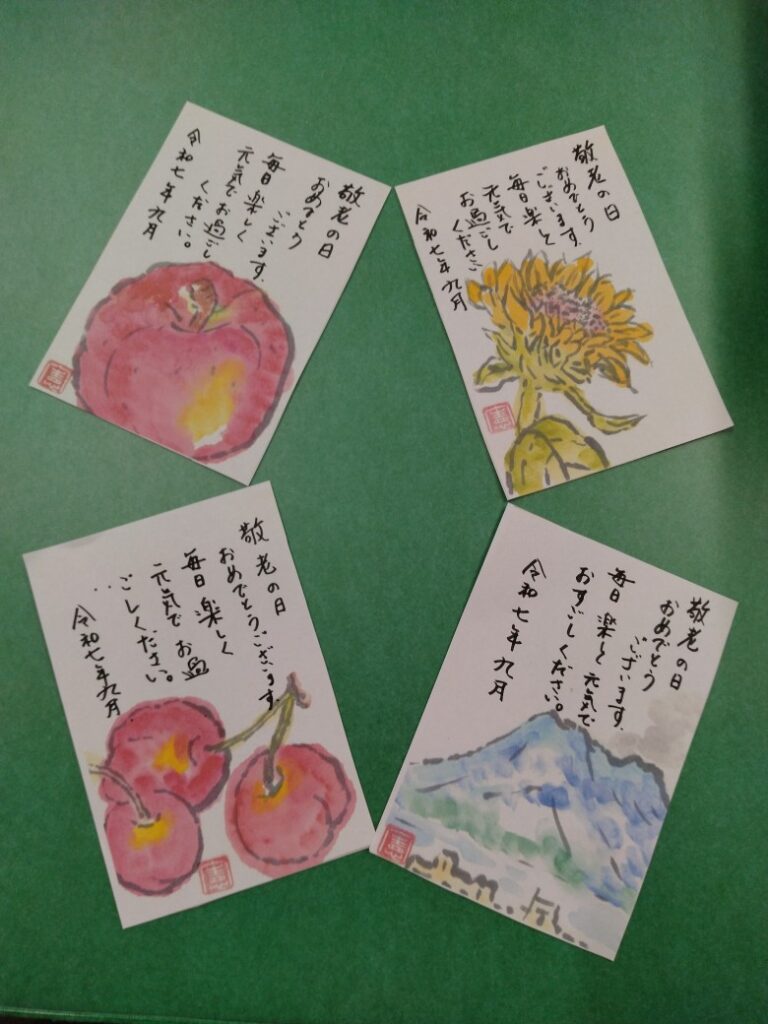 敬老の日
おめでとう
ございます。
毎日楽しく
元気でお過ごし
ください。
令和七年九月
敬老の日
おめでとう
ございます。
毎日楽しく
元気で
お過ごし
ください
令和七年九月
敬老の日
おめでとうございます。
毎日楽しく
元気でお過
ごしください。
令和七年九月
敬老の日
おめでとう
ございます。
毎日楽しく元気で
おすごしください。
令和七年九月